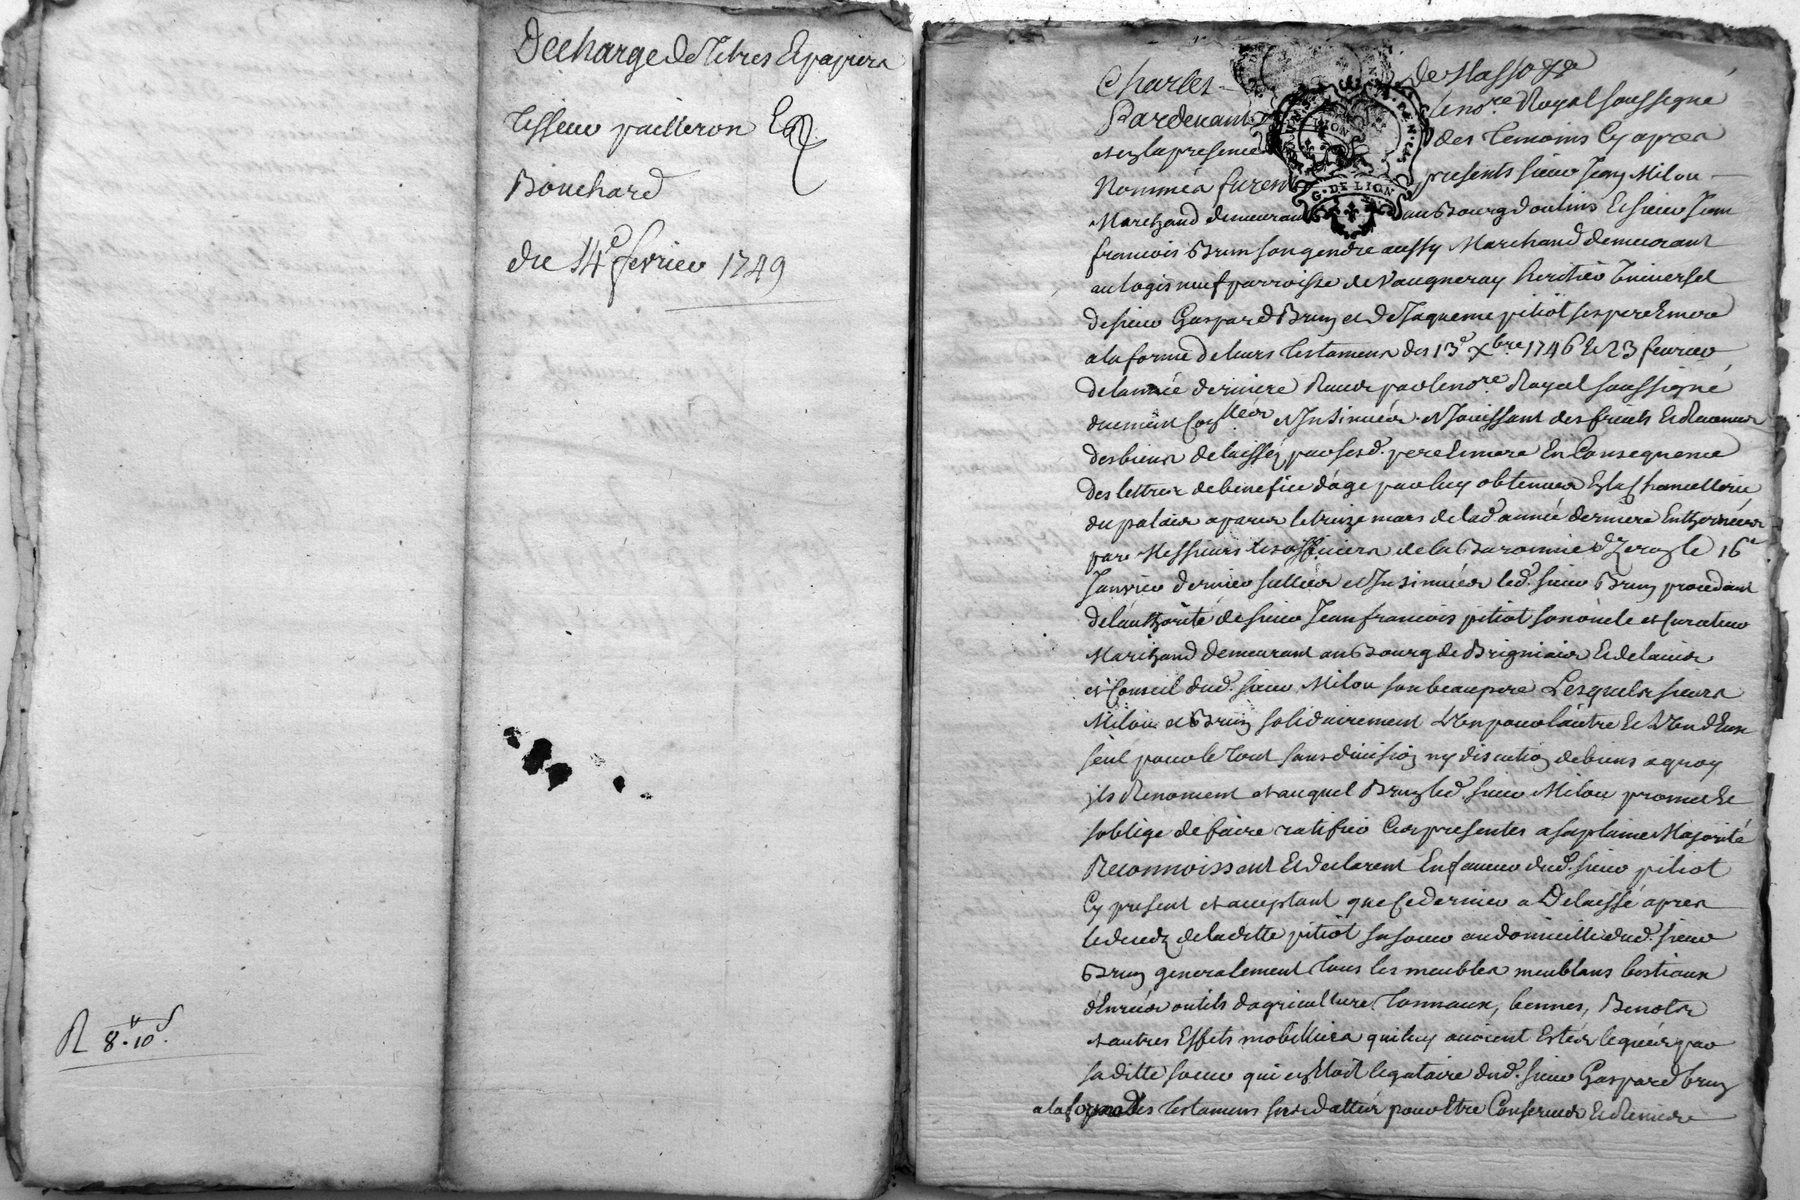 Decharge de Titres Et papiers
Tisseur pailleron Et
Bouchard
du 14e fevrier 1749
R 8.10s
Charles de Masso &r
Pardevant le nore Royal soussigné
et en la presence des temoins Cy apres
Nommés furent presents sieur Jean Milou
G. DE LION
Marchand demeurant au Bourg doulins Et sieur Jean
francois Brun son gendre aussy Marchand demeurant
au logis neuf parroisse de Vaugneray heritier Universel
de sieur Gaspard Brun et de Jaqueme pitiot ses pere Et mere
a la forme de leurs testamens des 13e xbre 1746 et 23 fevrier
de lannée derniere Receus par le nore Royal soussigné
duement et Insinués et Jouissant des fruits Et Revenus
des biens delaissés par sesd. pere Et mere En Consequence
des lettres de benefice d'age par luy obtenues En la Chancellerie
du palais a paris le treize mars de lad. année derniere Entherinées
par Messieurs les officiers de la Baronnie le 16e
Janvier dernier sellées et Insinuées led. sieur Brun procedant
de l'authorité de sieur Jean francois pitiot son oncle et Curateur
Marchand demeurant au Bourg de Brigniais Et de lavis
et Conseil dud. sieur Milou son beaupere Lesquels sieurs
Milou et Brun solidairement L'un pour l'autre Et L'un d'Eux
seul pour le tout sans division ny discution de biens a quoy
ils Renoncent et auquel Brun led. sieur Milou promet Et
soblige de faire ratifier Ces presentes a sa plaine Majorité
Reconnoissent Et declarent En faveur dud. sieur pitiot
Cy present et acceptant que Ce dernier a Delaissé apres
le decedz de laditte pitiot sa soeur au domicille dud. sieur
Brun generalement tous les meubles meublans bestiaux
denrées outils dagriculture, tonnaux, bennes, Benots
et autres Effets mobilliers qui luy avoient Estés legués par
sa ditte soeur qui Estoit legataire dud. sieur Gaspard brun
a la forme des testamens susdattés pour Etre Conservés Et Remis